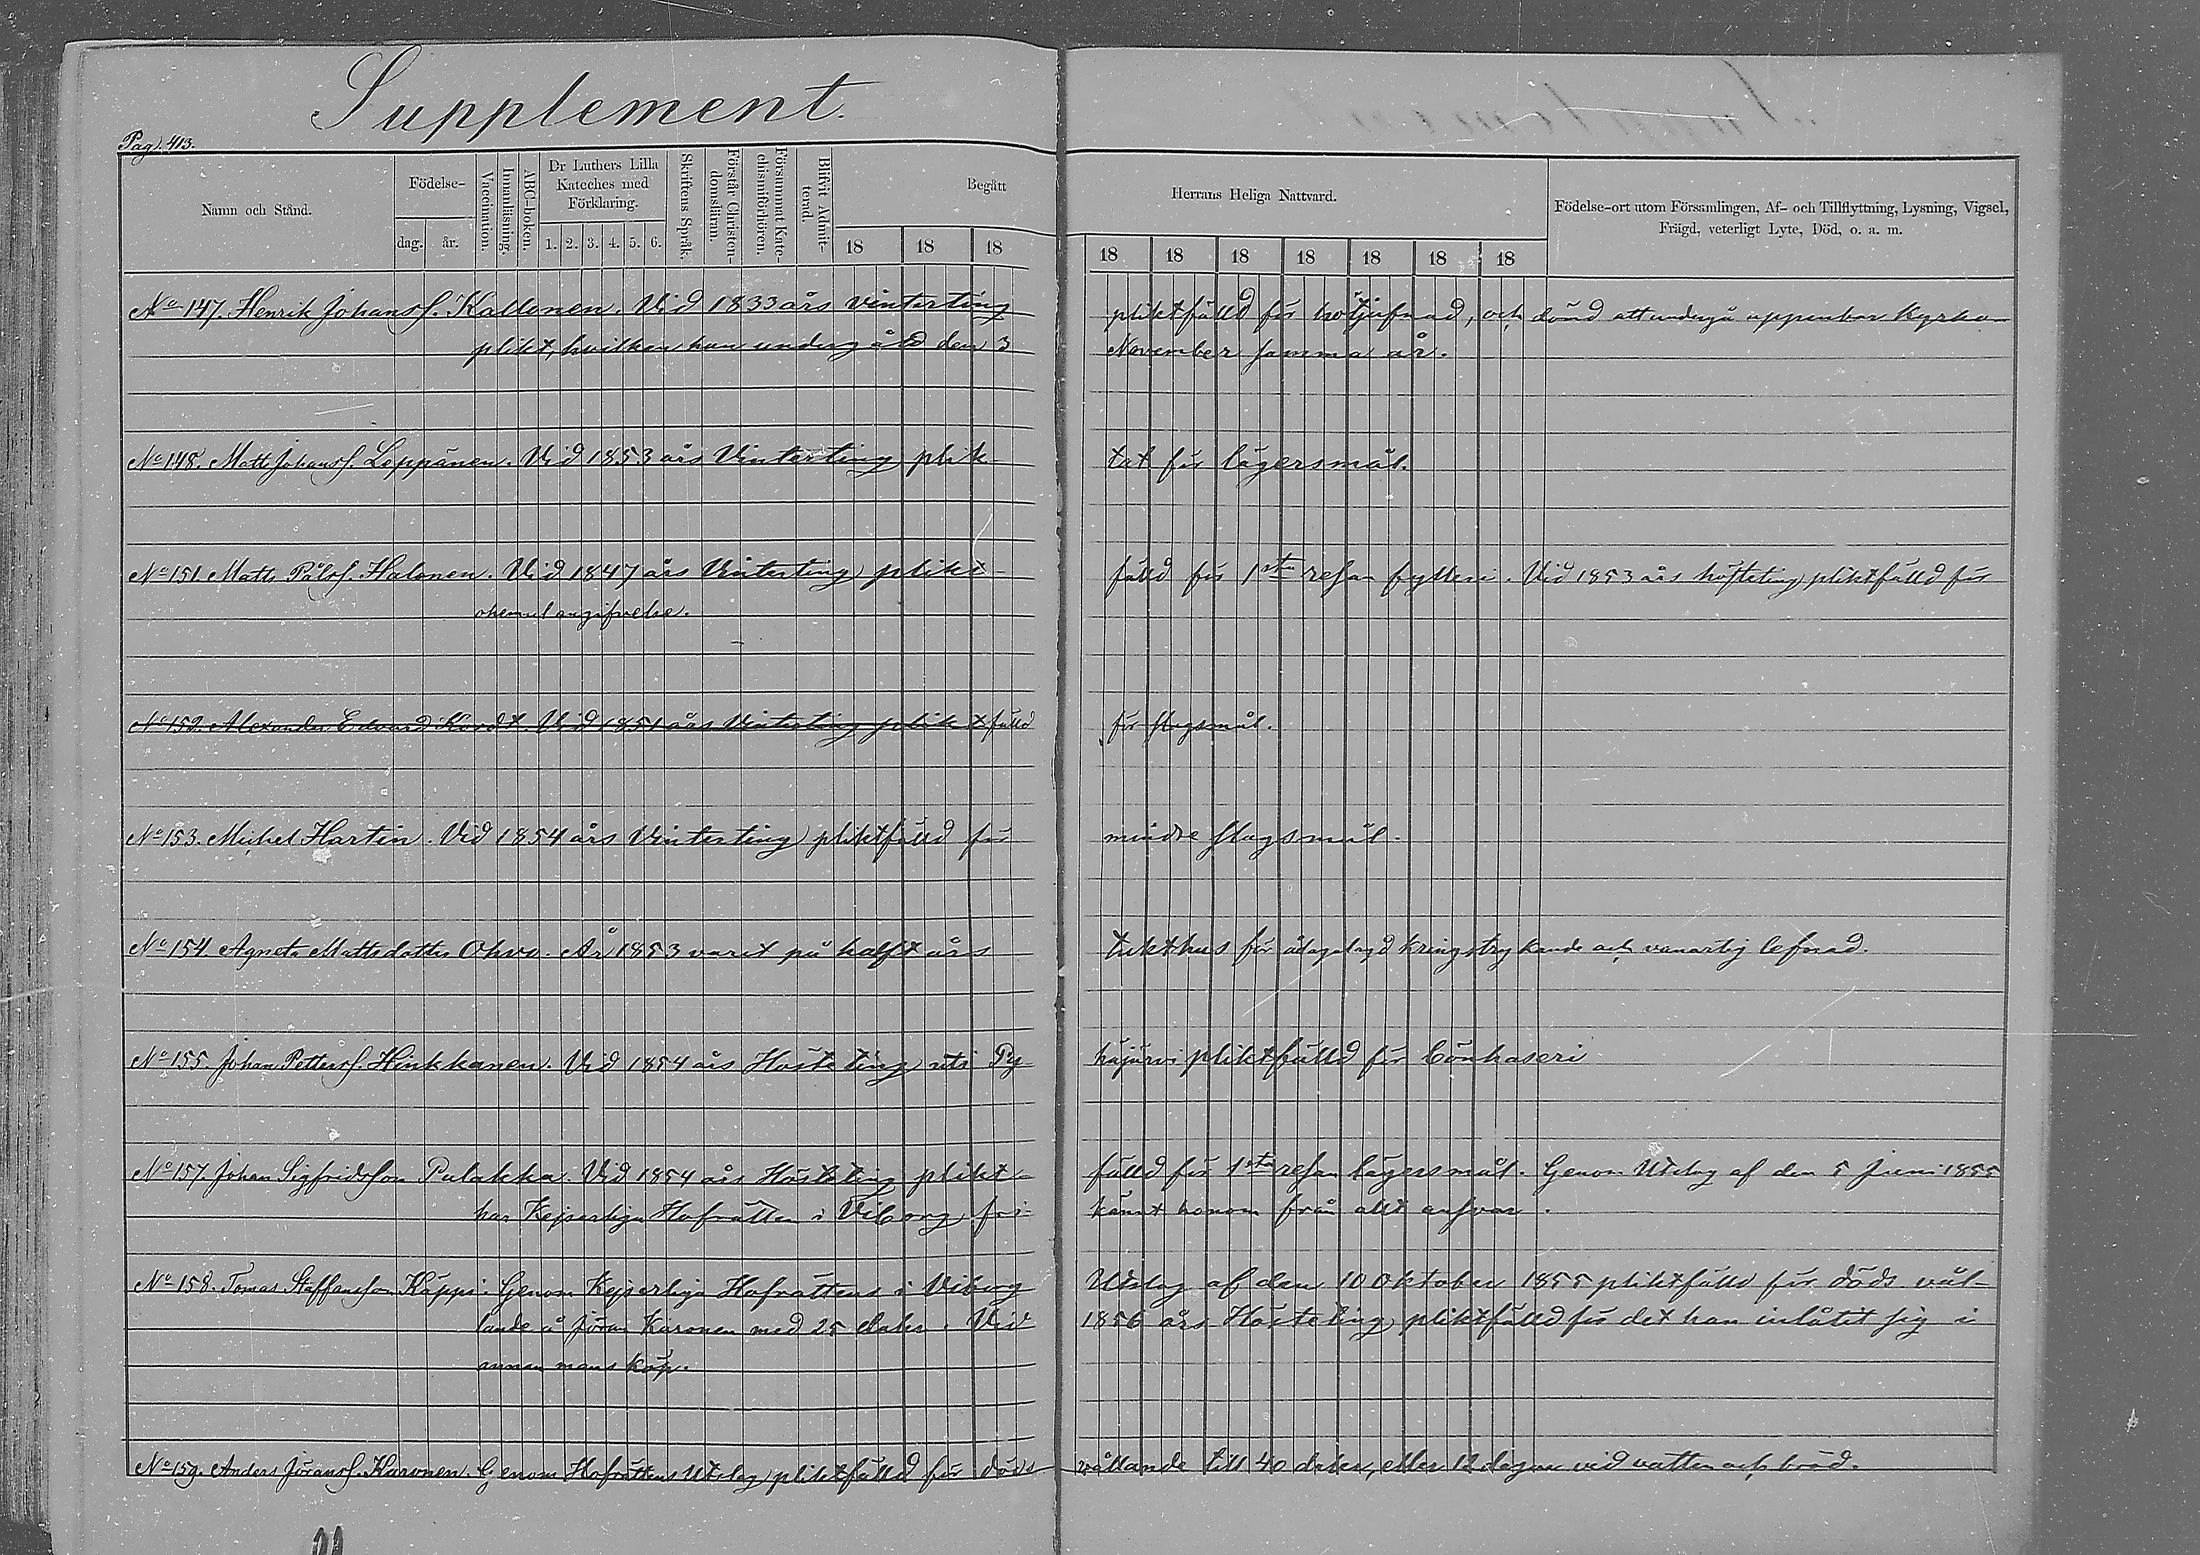 Supplement.
Pag. 413.
Namn och Stånd.
Födelse-
dag. år.
Vaccination.
Innanläsning.
ABC-boken.
Dr Luthers Lilla Kateches med Förklaring.
1. 2. 3. 4. 5. 6.
Skriftens Språk.
Förstår Christendomsläran.
Försummat Katechismiförhören.
Blifvit Admitterad.
Begått Herrans Heliga Nattvard.
18 18 18 18 18 18 18 18 18 18
Födelse-ort utom Församlingen, Af- och Tillflyttning, Lysning, Vigsel,
Frägd, veterligt Lyte, Död, o. a. m.
No 147. Henrik Johanss. Kallonen. Vid 1833 års vinterting pliktfälld för och dömd att undergå uppenbar Kyrko-
plikt, hvilken han undergått den 3 November samma år.
No 148. Matts Johanss. Leppänen. Vid 1853 års Vinterting plik- tat för lägersmål.
No 151. Matts Pålss. Halonen. Vid 1847 års Vinterting plikt- fälld för 1sta resan fylleri. Vid 1853 års hösteting pliktfälld för
angifvelse.
No 152. Alexander Edvard Kordt. Vid 1851 års Vinterting pliktfälld för slagsmål.
No 153. Michel Hartin. Vid 1854 års Vinterting pliktfälld för mindre slagsmål.
No 154. Agneta Mattsdotter Ohvo. År 1853 varit på halft års tukthus för ådagalagd kringstrykande och vanartig lefnad.
No 155. Johan Petterss. Hinkkanen. Vid 1854 års Hösteting uti Py- häjärvi pliktfälld för lönkaseri
No 157. Johan Sigfridsson Pulakka. Vid 1854 års Hösteting plikt- fälld för 1sta resan lägersmål. Genom Utslag af den 5 Juni 1855
har Kejserliga Hofrätten i Viborg fri- kännt honom från allt ansvar.
No 158. Tomas Staffansson Käppi. Genom Kejserliga Hofrättens i Viborg Utslag af den 10 Oktober 1855 pliktfälld för döds vål-
lande å Jöran Karonen med 25 daler. Vid 1856 års Hösteting pliktfälld för det han inlåtit sig i
annan mans köp.
No 159. Anders Jöranss. Karonen. Genom Hofrättens Utslag pliktfälld för döds vållande till 40 daler, eller 12 dagar vid vatten och bröd.